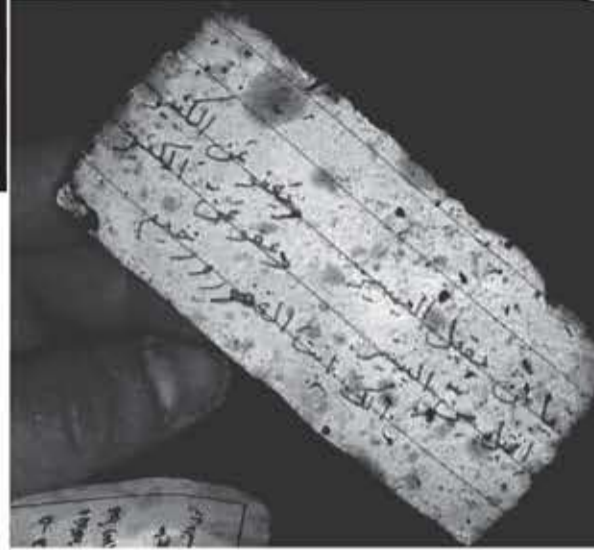 يا من يقبل اليسير ويعفو عن الكثير
اقبل من اليسير وعفو عن الكثير
انك انت الغفور ورحيم